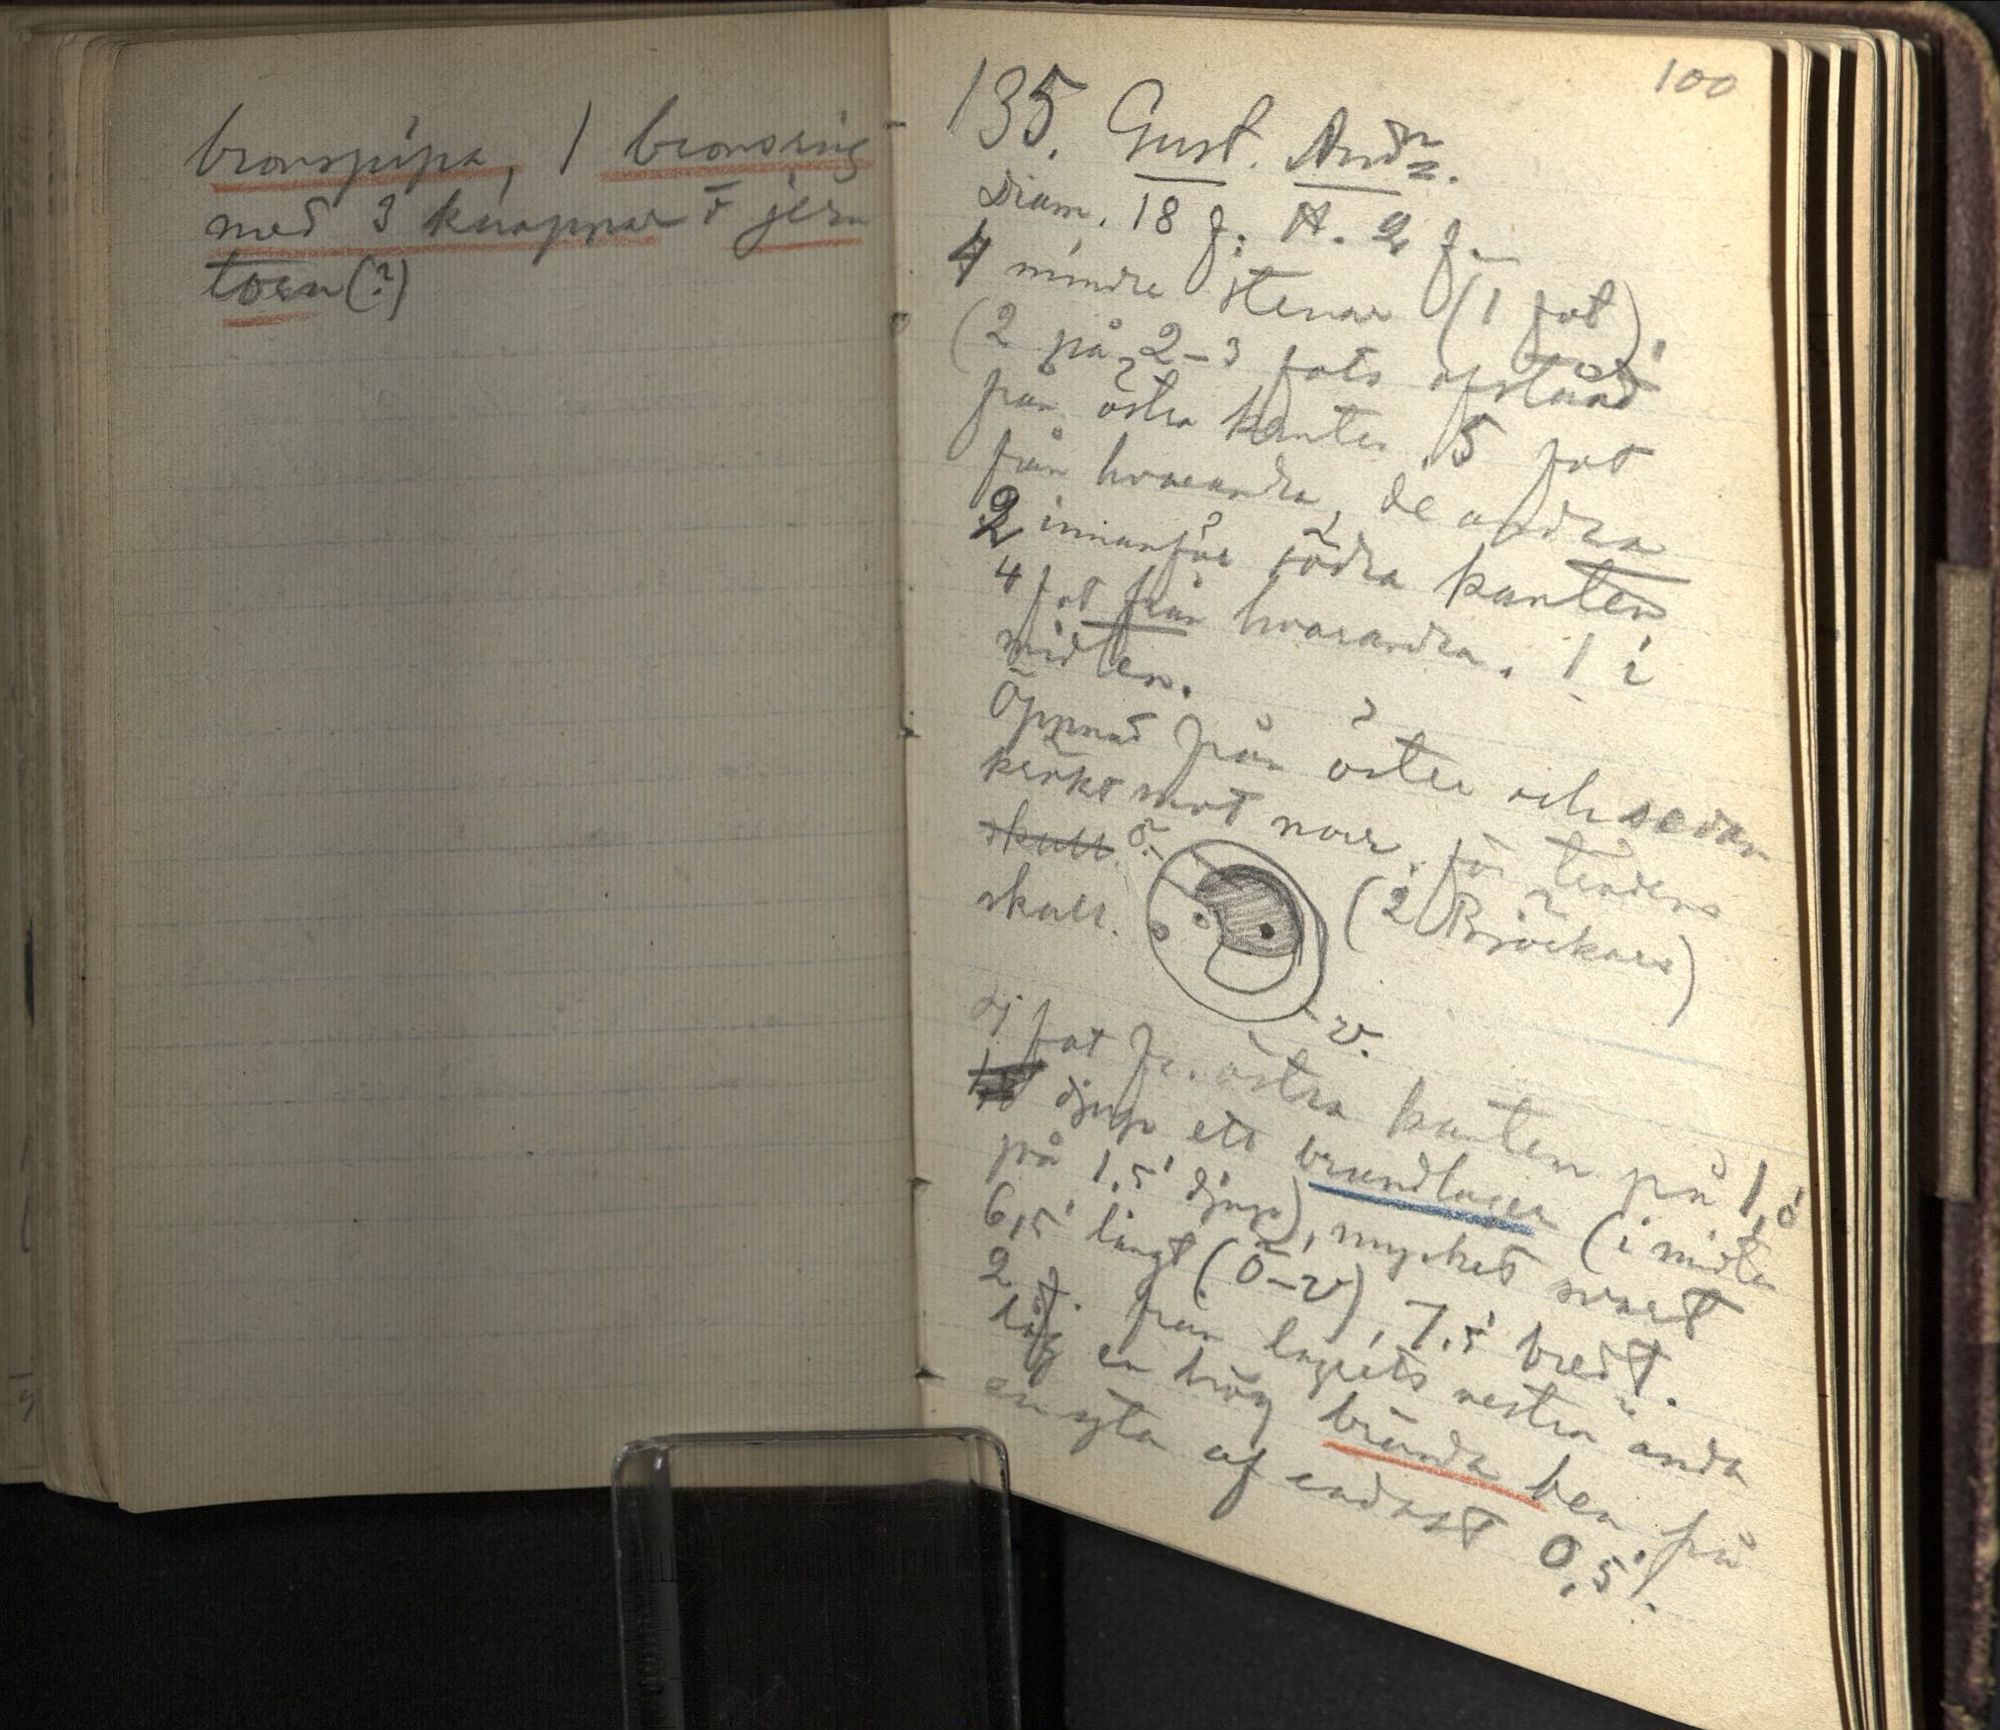 bronspipa, 1 bronsring
med 3 knappar o jern
ten(?)
100
135. Gust. Andn.
Diam. 18 f; H. 2 f.
4 mindre stenar (1 fot)
(2 på 2-3 fots afstånd
från östra kanten 5 fot
från hvarandra, de andra
2 innanför södra kanten
4 fot från hvarandra. 1 i
midten.
Öppnad från öster och sedan
kräkt mot norr, för tradens
skull.
skull. (2 Björkars)
Ö.
v.
fot fr. östra kanten på 1,5'
djup ett brandlager (i midten
på 1,5' djup), mycket svart
6,5' långt (Ö-v), 7,5' bredt.
2 f. från lagrets vestra ända
låg en hög brända ben på
en yta af endast 0,5'.